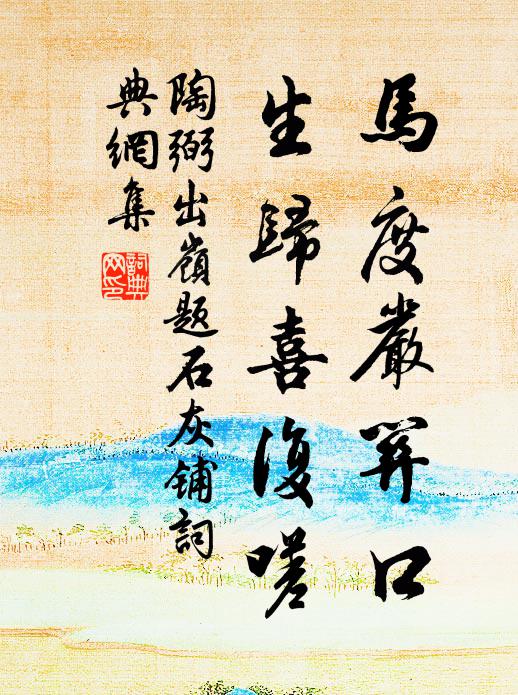 馬度嚴關口
生歸喜復嗟
陶弼出嶺題石灰鋪詞
典網集
詞典網印